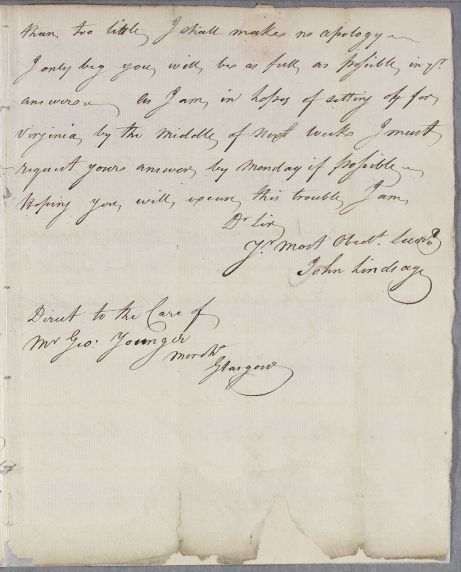 than too little, I shall make no apology —
I only beg you will be as full as possible in yr.
answers — As I am in hopes of setting off for
Virginia by the middle of next week I must
request your answer by Monday if possible —
hoping you will excuse this trouble I am
Dr Sir
Yr Most Obedt. Servt
John Lindsay
Direct to the Care of
Mr Geo: Younger
Mercht
Glasgow